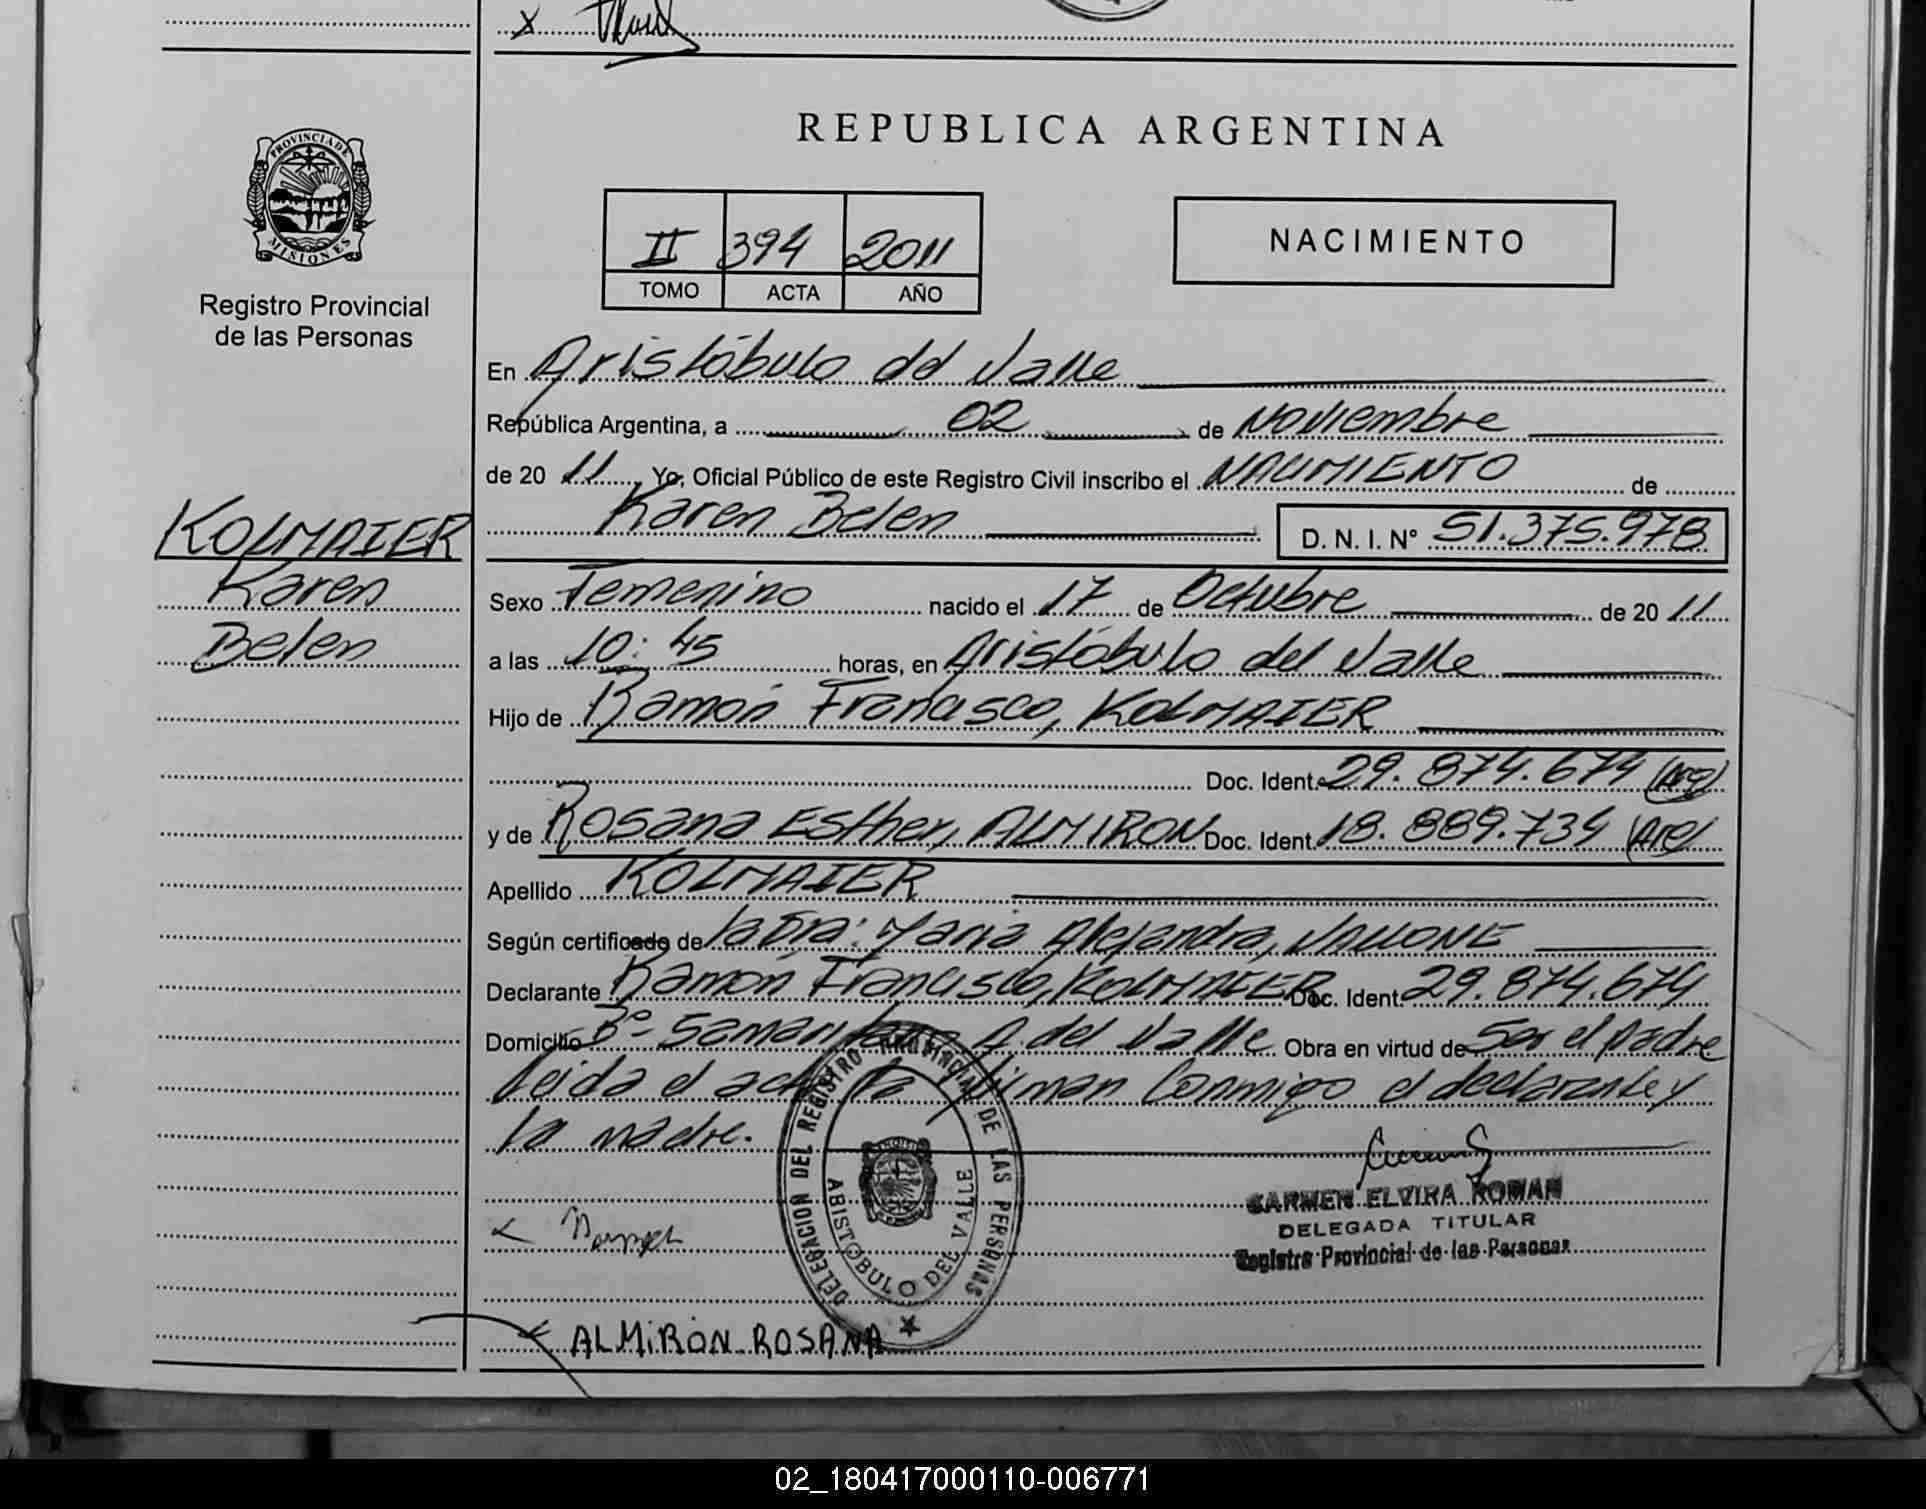 X
REPUBLICA ARGENTINA
PROVINCIA DE
MISIONES
Registro Provincial
de las Personas
II 394 2011
TOMO ACTA AÑO
NACIMIENTO
En Aristóbulo del Valle
República Argentina, a 02 de Noviembre
de 20 11 Yo, Oficial Público de este Registro Civil inscribo el NACIMIENTO de
Karen Belen D. N. I. N° 51.375.978
KOLMAIER
Karen
Belen
Sexo Femenino nacido el 17 de Octubre de 20 11
a las 10:45 horas, en Aristóbulo del Valle
Hijo de Ramón Francisco, KOLMAIER
Doc. Ident. 29.874.674 (Arg)
y de Rosana Esther, ALMIRON Doc. Ident. 18.889.734 (Arg)
Apellido KOLMAIER
Según certificado de la Dra: Maria Alejandra, VALLONE
Declarante Ramón Francisco, KOLMAIER Doc. Ident. 29.874.674
Domicilio B°- Samaritano A. del Valle Obra en virtud de Ser el padre
Leida el acta la firman Conmigo el declarante y
la madre.
DELEGACION DEL REGISTRO PROVINCIAL DE LAS PERSONAS
ARISTOBULO DEL VALLE
CARMEN ELVIRA ROMAN
DELEGADA TITULAR
Registro Provincial de las Personas
ALMiRON ROSANA
02_180417000110-006771